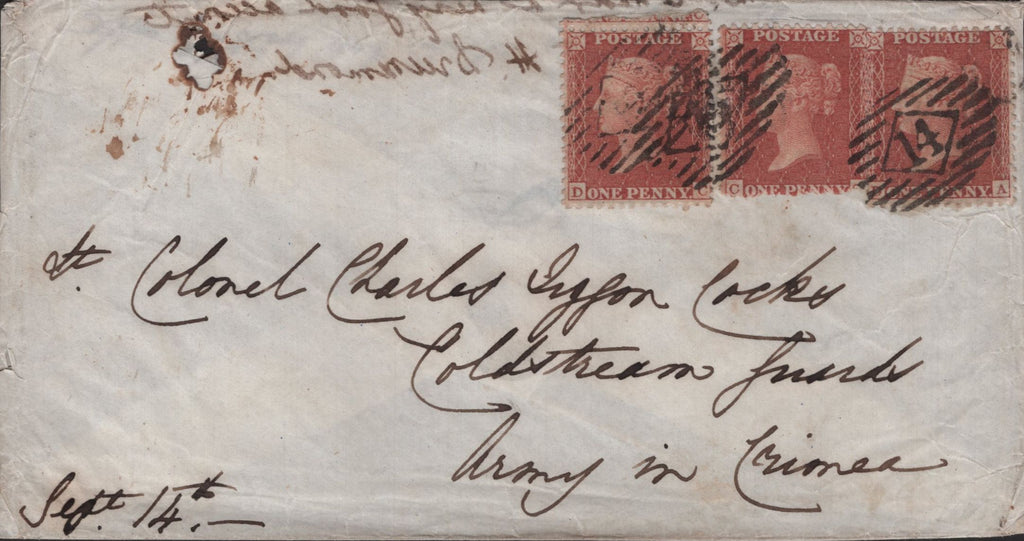 POSTAGE POSTAGE POSTAGE
D ONE PENNY C ONE PENNY PENNY A
14
Lt. Colonel Charles Tryon Cocks
Coldstream Guards
Army in Crimea
Sept. 14th. —